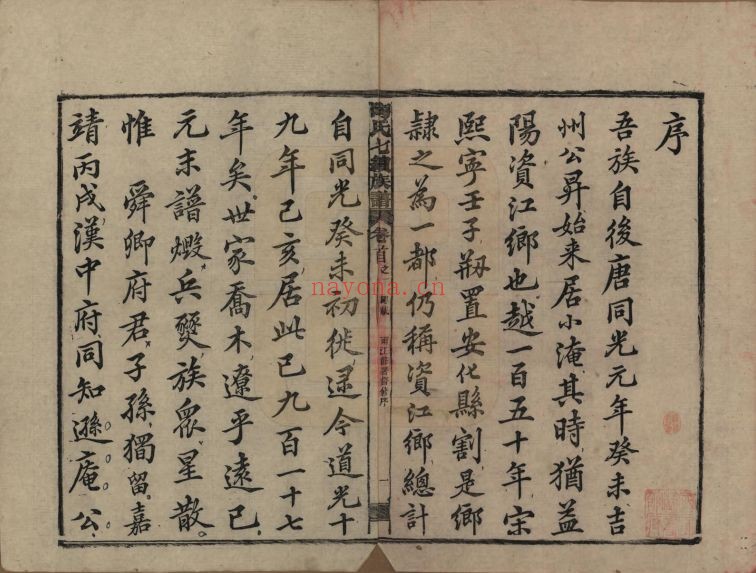 序
吾族自後唐同光元年癸未吉
州公昇始来居小淹其時猶益
陽資江鄉也越一百五十年宋
熙寧壬子剏置安化縣割是鄉
隸之為一都仍稱資江鄉總計
陶氏七續族譜
卷首之
兩江節署舊分序
一
自同光癸未初徙逮今道光十
九年己亥居此已九百一十七
年矣世家喬木遼乎遠已
元末譜燬兵燹族眾星散
惟 舜卿府君子孫獨留嘉
靖丙戌漢中府同知遜庵公
nayona.cn